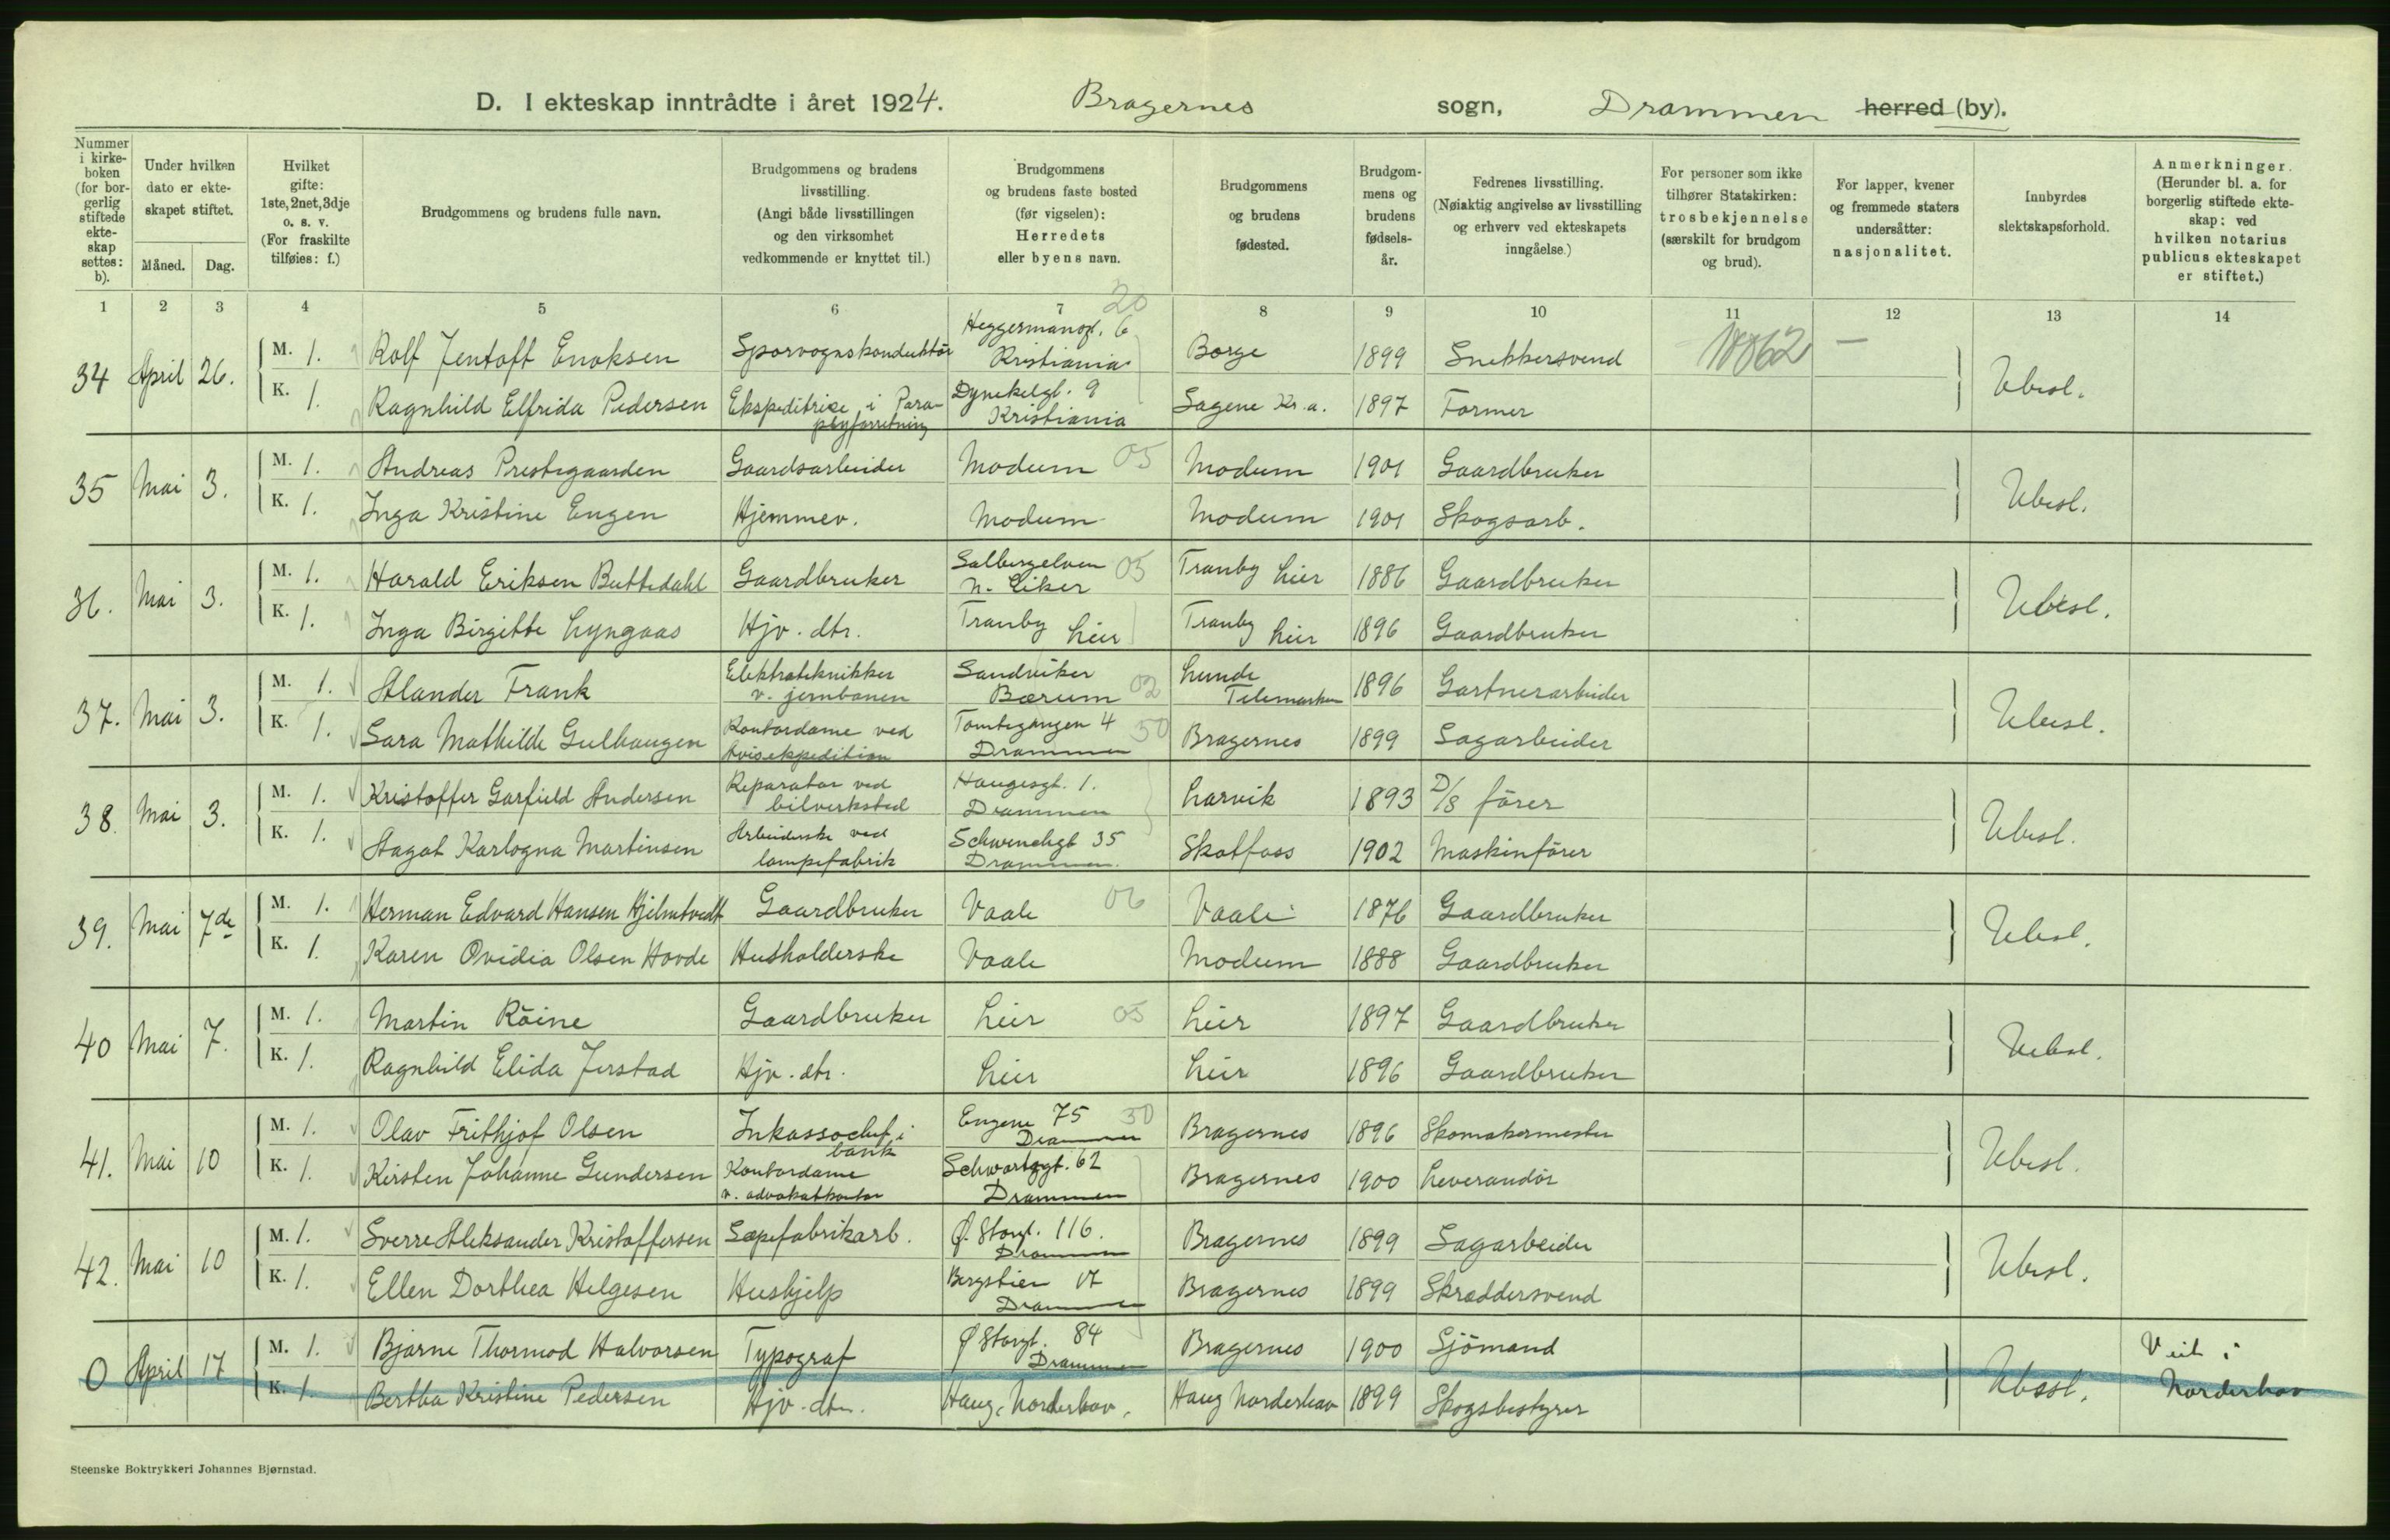 D. I ekteskap inntrådte i året 1924. Bragernes sogn, Drammen herred (by).
Nummer i kirke-boken (for bor-gerlig stiftede ekte-skap settes: b).
Under hvilken dato er ekte-skapet stiftet.
Måned. Dag.
Hvilket gifte: 1ste, 2net, 3dje o. s. v. (For fraskilte tilføies: f.)
Brudgommens og brudens fulle navn.
Brudgommens og brudens livsstilling. (Angi både livsstillingen og den virksomhet vedkommende er knyttet til.)
Brudgommens og brudens faste bosted (før vigselen): Herredets eller byens navn.
Brudgommens og brudens fødested.
Brudgom-mens og brudens fødsels-år.
Fedrenes livsstilling. (Nøiaktig angivelse av livsstilling og erhverv ved ekteskapets inngåelse.)
For personer som ikke tilhører Statskirken: trosbekjennelse (særskilt for brudgom og brud).
For lapper, kvener og fremmede staters undersåtter: nasjonalitet.
Innbyrdes slektskapsforhold.
Anmerkninger. (Herunder bl. a. for borgerlig stiftede ekte-skap: ved hvilken notarius publicus ekteskapet er stiftet.)
1 2 3 4 5 6 7 8 9 10 11 12 13 14
20
34 April 26. M. 1. Rolf Jentoft Enoksen Sporvognskonduktör Heggermansgt. 6 Kristiania Borge 1899 Snekkersvend 18862 —
K. 1. Ragnhild Elfrida Pedersen Ekspeditrise i Para-plyforretning Dynekelgt. 9 Kristiania Sagene Kr.a. 1897 Former Ubesl.
35 Mai 3. M. 1. Andreas Prestegaarden Gaardsarbeider Modum 05 Modum 1901 Gaardbruker
K. 1. Inga Kristine Engen Hjemmev. Modum Modum 1901 Skogsarb. Ubesl.
36. Mai 3. M. 1. Harald Eriksen Buttedahl Gaardbruker Solbergelven N. Eiker 05 Tranby Lier 1886 Gaardbruker
K. 1. Inga Birgitte Lyngaas Hjv. dtr. Tranby Lier Tranby Lier 1896 Gaardbruker Ubesl.
37. Mai 3. M. 1. Alander Frank Elektrotekniker v. jernbanen Sandviken Bærum 02 Lunde Telemarken 1896 Gartnerarbeider
K. 1. Sara Mathilde Gulhaugen Kontordame ved Avisekspedition Tomtegangen 4 Drammen 30 Bragernes 1899 Sagarbeider Ubesl.
38. Mai 3. M. 1. Kristoffer Garfield Andersen Reparatør ved bilverksted Haugesgt. 1. Drammen Larvik 1893 D/S fører
K. 1. Aagot Karlogna Martinsen Arbeiderske ved lampefabrik Schwenckgt 35 Drammen. Skotfoss 1902 Maskinfører Ubesl.
39. Mai 7de M. 1. Herman Edvard Hansen Hjelmtvedt Gaardbruker Vaale 06 Vaale 1876 Gaardbruker
K. 1. Karen Ovidia Olsen Hovde Husholderske Vaale Modum 1888 Gaardbruker Ubesl.
40 Mai 7. M. 1. Martin Röine Gaardbruker Lier 05 Lier 1897 Gaardbruker
K. 1. Ragnhild Elida Jerstad Hjv. dtr. Lier Lier 1896 Gaardbruker Ubesl.
41. Mai 10 M. 1. Olav Frithjof Olsen Inkassochef i bank Engene 75 Drammen 30 Bragernes 1896 Skomakermester
K. 1. Kirsten Johanne Gundersen Kontordame v. advokatkontor Schwartzgt. 62 Drammen Bragernes 1900 Leverandör Ubesl.
42. Mai 10 M. 1. Sverre Aleksander Kristoffersen Sæpefabrikarb. Ø. Storgt. 116. Drammen Bragernes 1899 Sagarbeider
K. 1. Ellen Dorthea Helgesen Hushjelp Bergstien 17 Drammen Bragernes 1899 Skræddersvend Ubesl.
0 April 17 M. 1. Bjarne Thormod Halvorsen Typograf Ø Storgt. 84 Drammen Bragernes 1900 Sjömand Viet i
K. 1. Bertha Kristine Pedersen Hjv. dtr. Haug, Norderhov. Haug Norderhov 1899 Skogsbestyrer Ubesl. Norderhov
Steenske Boktrykkeri Johannes Bjørnstad.